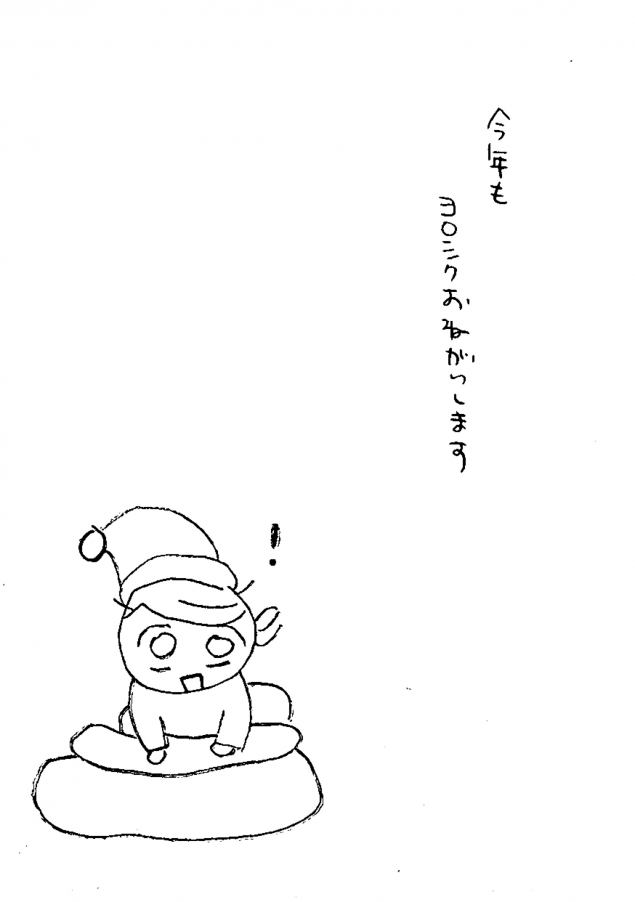 今年も
ヨロシクおねがいします
!